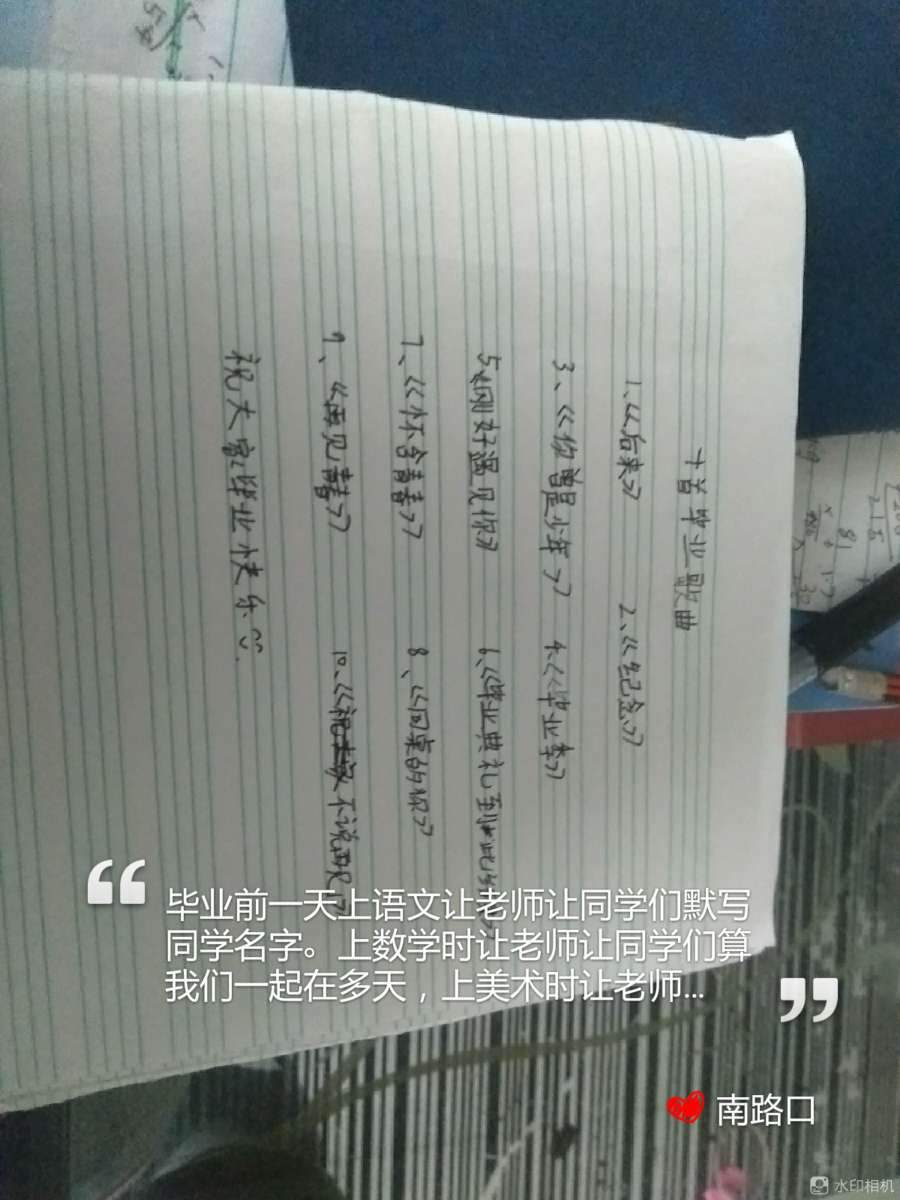 十首毕业歌曲
1、《后来》 2、《纪念》
3、《你曾是少年》 4、《毕业季》
5、《刚好遇见你》 6、《毕业典礼到此
7、《怀念青春》 8、《同桌的你》
9、《再见青春》 10、《不说再见》
祝大家毕业快乐
“
毕业前一天上语文让老师让同学们默写
同学名字。上数学时让老师让同学们算
我们一起在多天，上美术时让老师...
”
南路口
水印相机